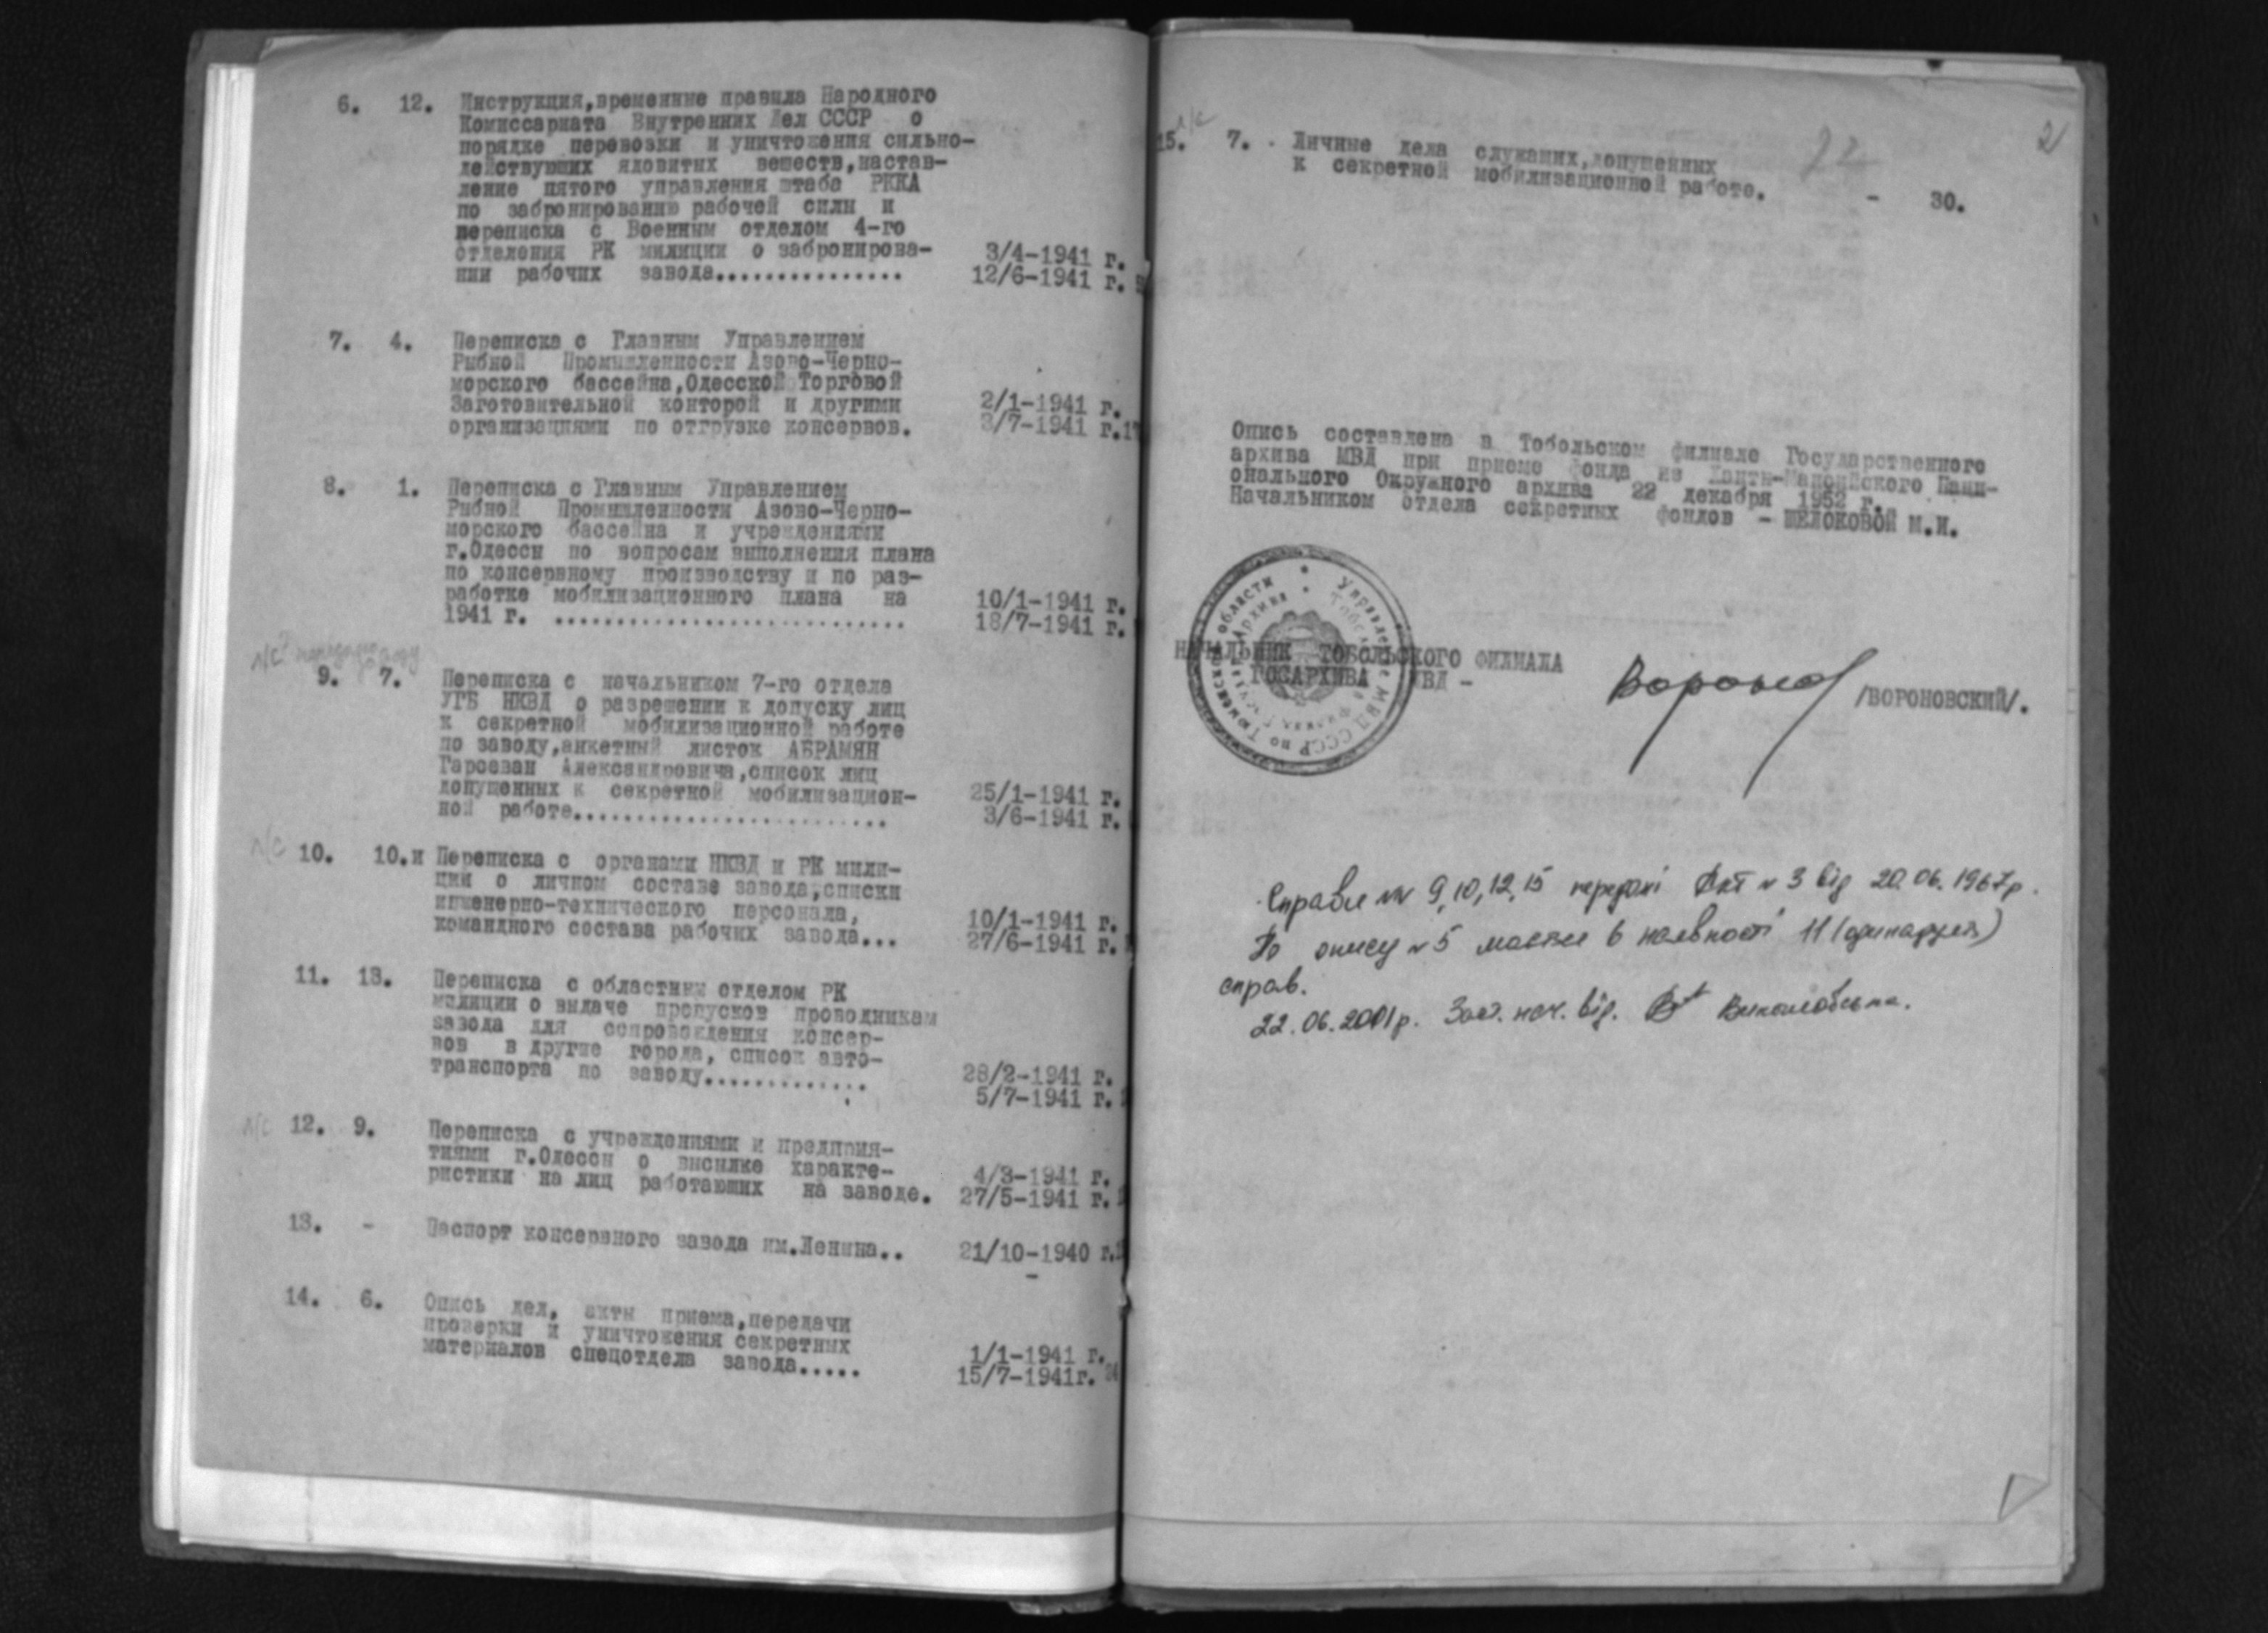 6. 12. Инструкция,временные правила Народного
Комиссариата Внутренних Дел СССР о
порядке перевозки и уничтожения сильно-
действующих ядовитых веществ,настав-
ление пятого управления штаба РККА
по забронированию рабочей силы и
переписка с Военным отделом 4-го
отделения РК милиции о забронирова- 3/4-1941 г.
нии рабочих завода............... 12/6-1941 г.
7. 4. Переписка с Главным Управлением
Рыбной Промышленности Азово-Черно-
морского бассейна,Одесской Торговой
Заготовительной конторой и другими 2/1-1941 г.
организациями по отгрузке консервов. 3/7-1941 г.
8. 1. Переписка с Главным Управлением
Рыбной Промышленности Азово-Черно-
морского бассейна и учреждениями
г.Одессы по вопросам выполнения плана
по консервному производству и по раз-
работке мобилизационного плана на 10/1-1941 г.
1941 г. ............................ 18/7-1941 г.
л/с
9. 7. Переписка с начальником 7-го отдела
УГБ НКВД о разрешении к допуску лиц
к секретной мобилизационной работе
по заводу,анкетный листок АБРАМЯН
Гарсеван Александровича,список лиц
допущенных к секретной мобилизацион- 25/1-1941 г.
ной работе......................... 3/6-1941 г.
л/с 10. 10.и Переписка с органами НКВД и РК мили-
ции о личном составе завода,списки
инженерно-технического персонала, 10/1-1941 г.
командного состава рабочих завода... 27/6-1941 г.
11. 13. Переписка с областным отделом РК
милиции о выдаче пропусков проводникам
завода для сопровождения консер-
вов в другие города, список авто-
транспорта по заводу............. 28/2-1941 г.
5/7-1941 г.
л/с 12. 9. Переписка с учреждениями и предприя-
тиями г.Одессы о высылке характе- 4/3-1941 г.
ристики на лиц работающих на заводе. 27/5-1941 г.
13. - Паспорт консервного завода им.Ленина.. 21/10-1940 г.
-
14. 6. Опись дел, акты приема,передачи
проверки и уничтожения секретных 1/1-1941 г.
материалов спецотдела завода..... 15/7-1941г.
22 2
л/с
15. 7. Личные дела служащих,допущенных
к секретной мобилизационной работе. - 30.
Опись составлена в Тобольском филиале Государственного
архива МВД при приеме фонда из Ханты-Мансийского Наци-
онального Окружного архива 22 декабря 1952 г.
Начальником отдела секретных фондов - ЩЕЛОКОВОЙ М.И.
НАЧАЛЬНИК ТОБОЛЬСКОГО ФИЛИАЛА
ГОСАРХИВА МВД - /ВОРОНОВСКИЙ/.
Управление МВД СССР по Тюменской области
Справи №№ 9,10,12,15 передані Акт № 3 від 20.06.1967р.
По опису № 5 мається в наявності 11 (одинадцять)
справ.
22.06.2001р. Заст. нач. від.